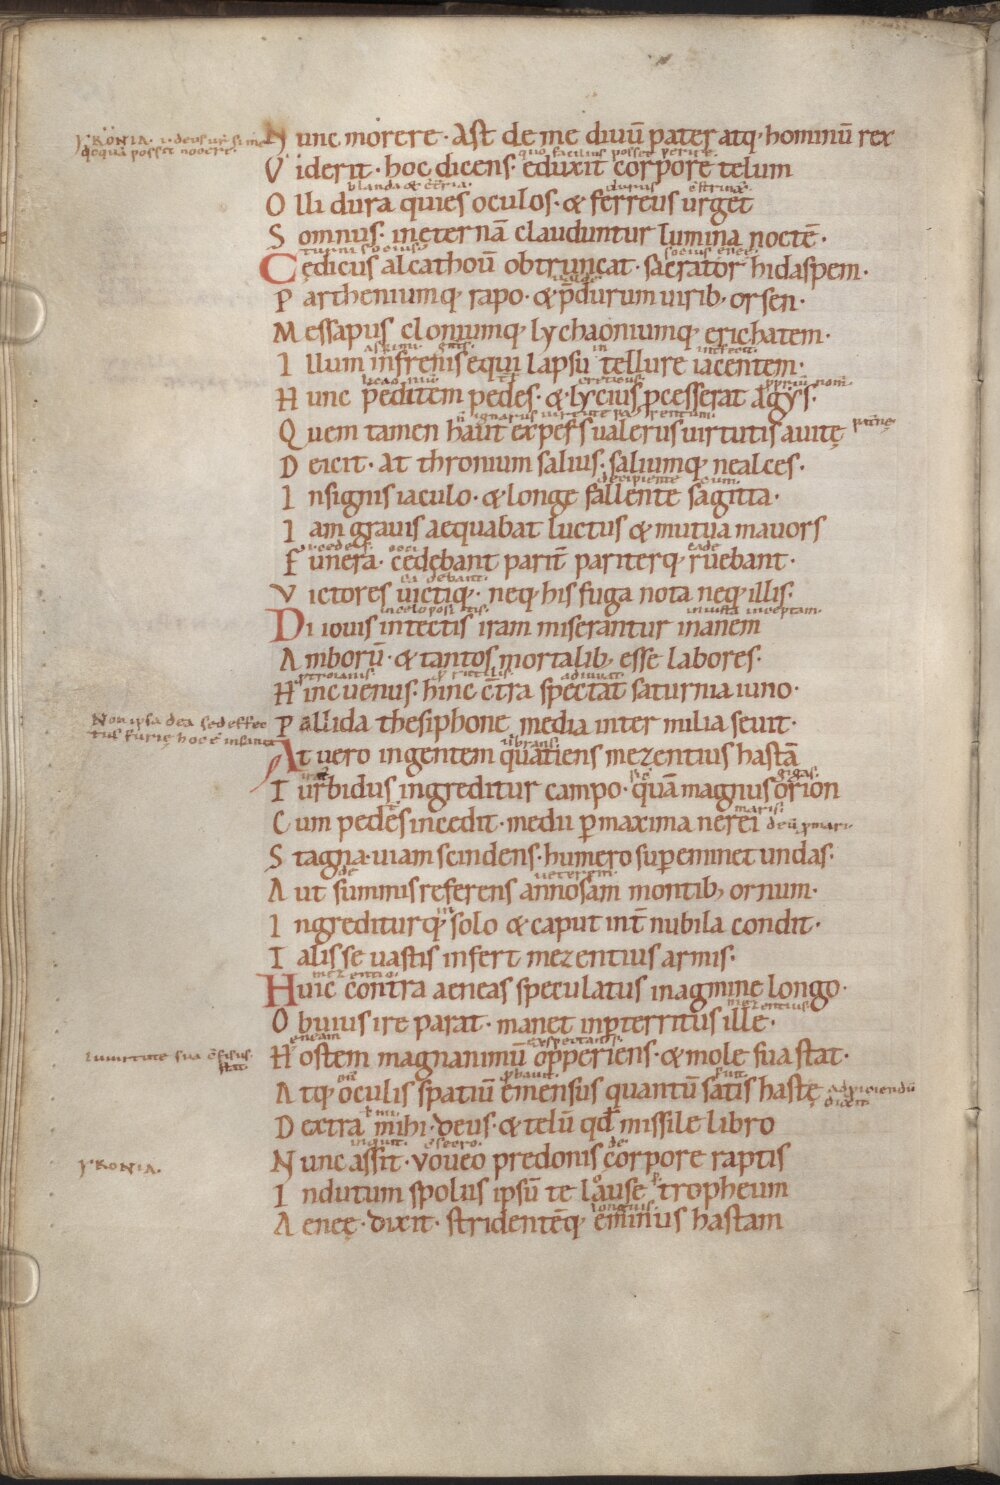 N unc morere · Ast de me diuū pater atq· hominū rex
yRONIA · i· deus ur̄ si me
de quā possit nocere·
V iderit · hoc dicens· eduxit corpore telum
quo facilius posset perire·
O lli dura quies oculos· & ferreus urget
S omnus· in eternā clauduntur lumina noctē·
C ędicus alcathoū obtruncat· sacrator hidaspem·
P artheniumq· rapo· & p̄durum uirib; orsen·
M essapus cloniumq· lychaoniumq· erichatem·
I llum infrenis equi lapsu tellure iacentem·
in
H unc peditem pedes· & lycius pcesserat agys·
Q uem tamen haut expers ualerus uirtutis auitę
D eicit· at thronium salius· saliumq· nealces·
decipiente
I nsignis iaculo· & longe fallente sagitta·
I am grauis aequabat luctus & mutua mauors
F unera· cedebant parit̄ pariterq· ruebant·
V ictores uictiq·· neq· his fuga nota neq· illis·
D i iouis in tectis iram miserantur inanem
A mborū· & tantos mortalib; esse labores·
H inc uenus· hinc c̄tra spectat saturnia iuno·
P allida thesiphone media inter milia seuit·
Non ipsa dea sed effec
tus furię hoc ē insania
A t uero ingentem quatiens mezentius hastā
T urbidus ingreditur campo· quā magnus orion
gigas·
C um pedes incedit· medii p maxima nerei
maris·
S tagna· uiam scindens· humero supeminet undas·
de
A ut summis referens annosam montib; ornum·
ueterem·
I ngrediturq· solo & caput int̄ nubila condit·
T alis se uastis infert mezentius armis·
mezentio·
H uic contra aeneas speculatus in agmine longo·
O buius ire parat· manet inp̄territus ille·
mezentius·
eneam
H ostem magnanimū opperiens· & mole sua stat·
expectans·
A tq· oculis spatiū emensus quantū satis hastę
D extra mihi· deus· & telū qd missile libro
N unc assit· voueo predonis corpore raptis
inquit·
de
yRONIA·
I ndutum spoliis ipsū te lause tropheum
A eneę· dixit· stridentēq· eminus hastam
longius·